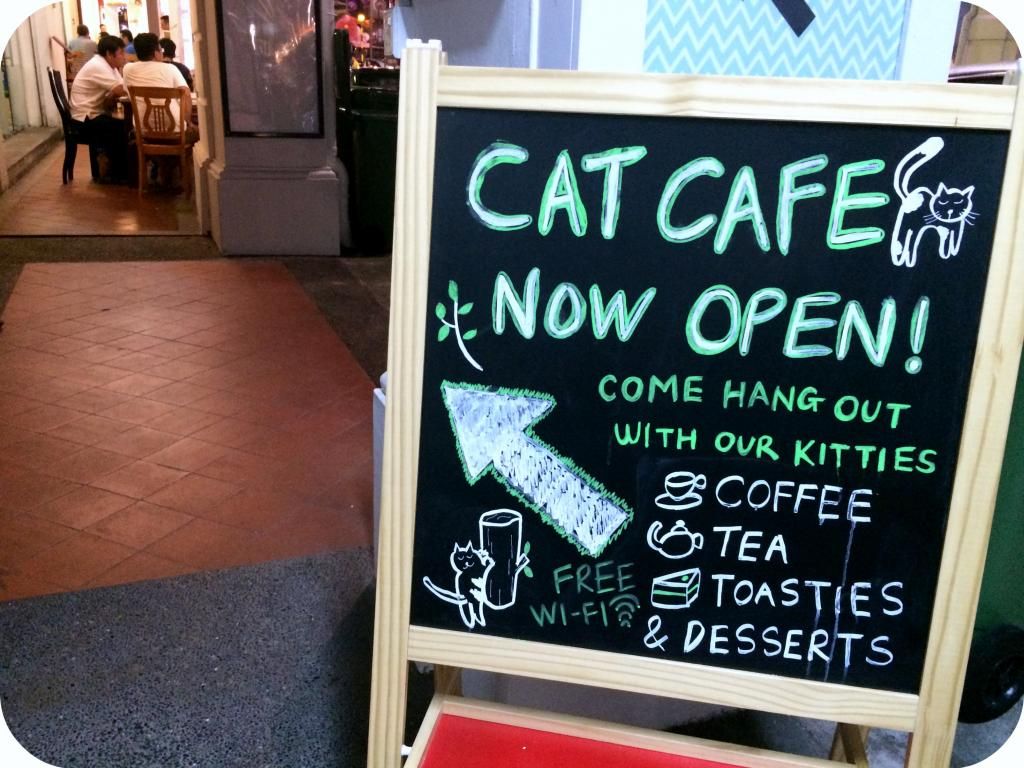 CAT CAFE
NOW OPEN!
COME HANG OUT
WITH OUR KITTIES
COFFEE
TEA
TOASTIES
& DESSERTS
FREE
WI-FI